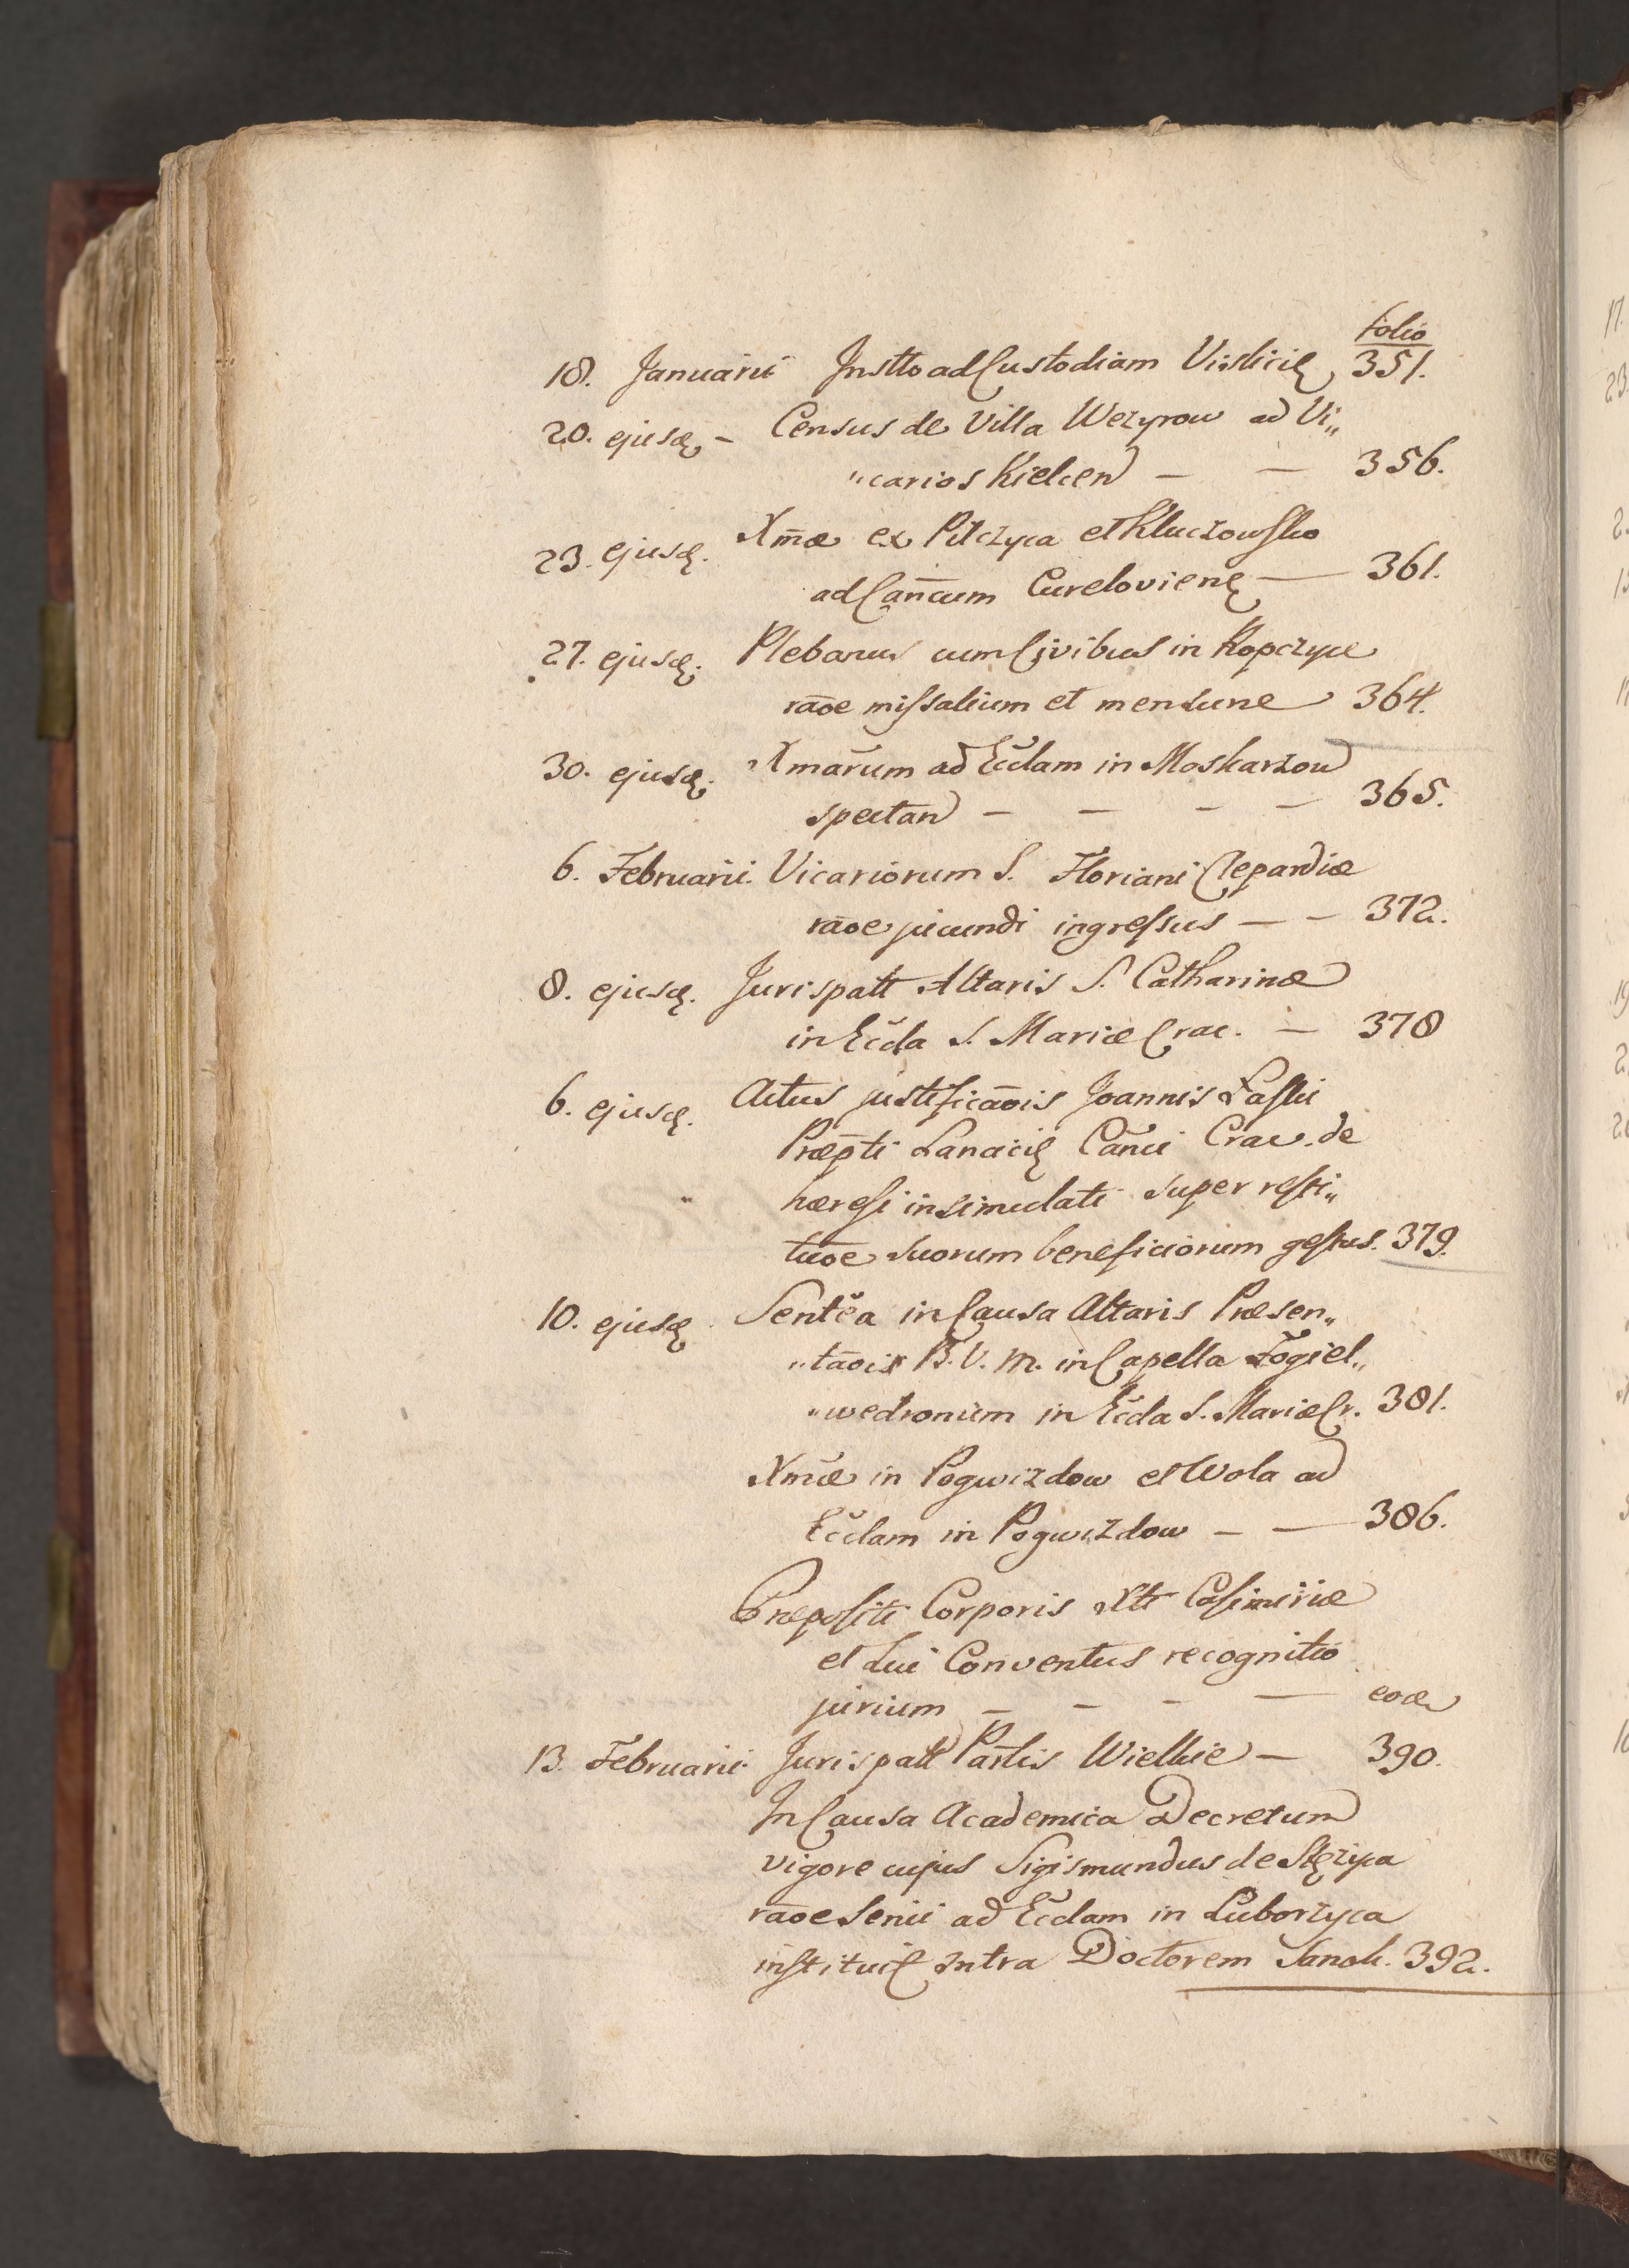 folio
18. Januarii Instto ad Custodiam Vislicię 351.
20. ejusdę - Census de Villa Wezyrow ad Vi„
„carios Kielcen — — 356.
23. ejusdę. Xm̄æ ex Pilczyca et Kluczowsko
ad Can̄cum Curelovienę — 361.
27. ejusdę. Plebanus cum Civibus in Ropczyce
rāoe missalium et mensurne 364.
30. ejusdę. Xmār̄um ad Eccl̄am in Moskarzow
spectan — — — — 365.
6. Februarii. Vicariorum S. Floriani Clepardiæ
rāoe jucundi ingressus — — 372.
8. ejusdę. Jurispatt Altaris S. Catharinæ
in Eccl̄a S. Mariæ Crac. — 378
6. ejusdę. Actus justificāois Joannis Laski
Præp̄ti Lanacię Can̄ci Crac. de
hæresi insimulati super resti„
tuōe suorum beneficiorum gestus. 379.
10. ejusdę Sentēa in Causa Altaris Præsen„
„tāois B. V. M. in Capella Fogiel„
„wedronum in Eccl̄a S. Mariæ Cr. 381.
Xm̄æ in Pogwizdow et Wola ad
Eccl̄am in Pogwizdow — — 386.
Præpositi Corporis Xti Casimiriæ
et sui Conventus recognitio
jurium — — — — eodę
13. Februarii. Jurispatt Parlis Wielkie — 390.
In Causa Academica Decretum
vigore cujus Sigismundus de Stęzyca
rāoe Senii ad Eccl̄am in Luborzyca
instituię intra Doctorem Sanok. 392.